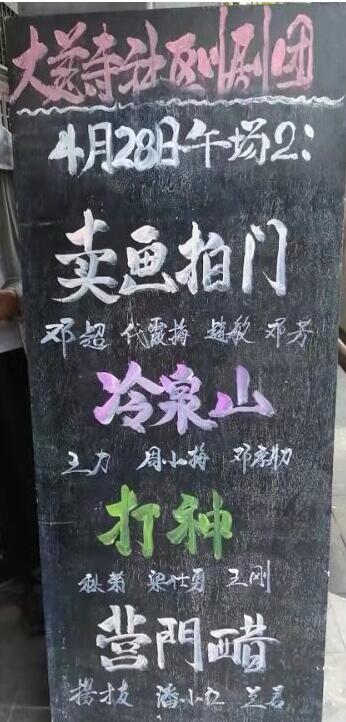 大慈寺社区川剧团
4月28日午场2:
卖画拍门
邓超 代霞梅 赵敏 邓芳
冷泉山
王力 周小梅
打神
秋菊 梁仕勇 王刚
营門醋
揚才友 潘小红 兰君